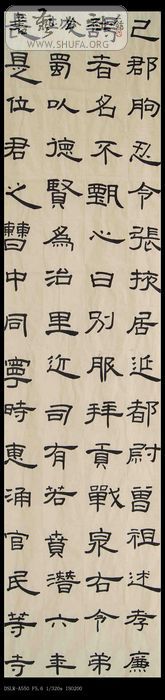 WWW.SHUFA.ORG
己郡朐忍令張掖居延都尉曾祖述孝廉
謁者名不甄心曰別服拜貢戰泉右令弟
蜀以德賢為治里近司有若賁潛六年
長是位君之曹中同寧時惠涌官民等寺
DSLR-A550 F5.6 1/320s ISO200